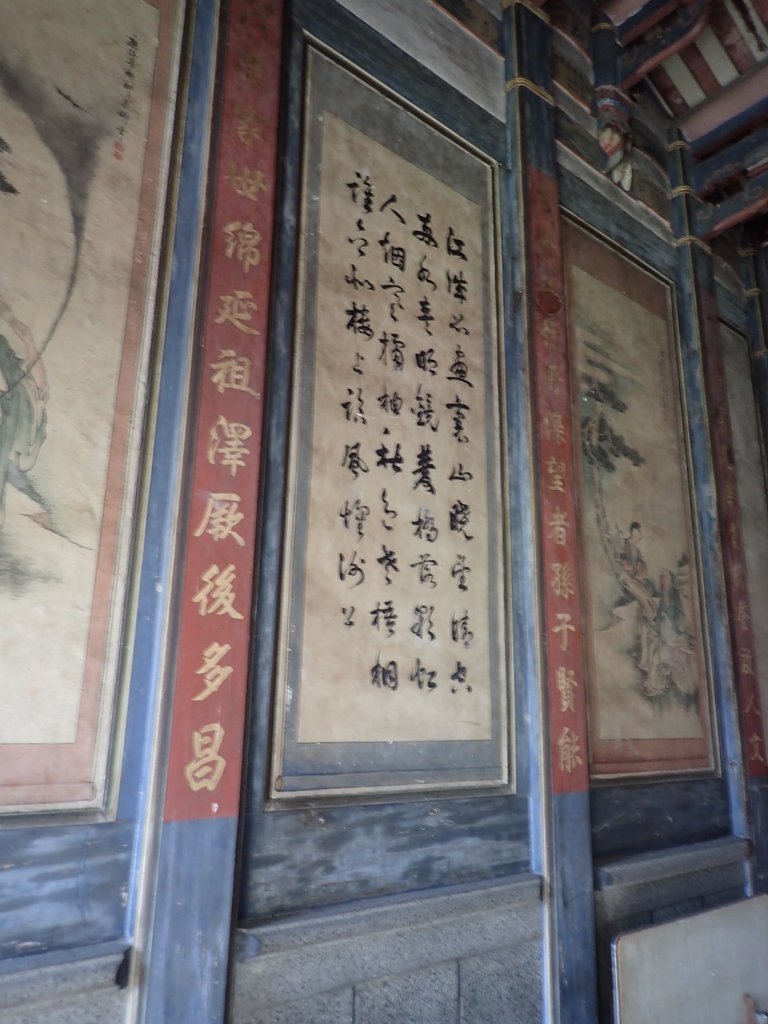 人文
深望者孫子賢能
江城如畫裏山曉望晴空
兩水夾明鏡雙橋落彩虹
人烟寒橘柚秋色老梧桐
誰念北樓上臨風懷謝公
家世綿延祖澤厥後多昌